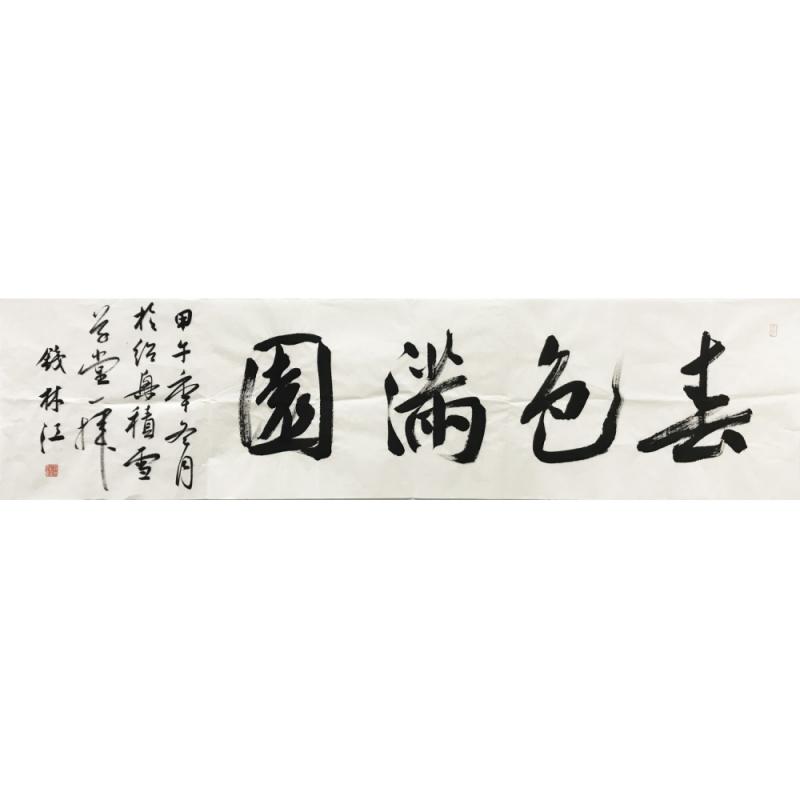 春色滿園
甲午年冬月
於紹興積雪
草堂一揮
錢林江